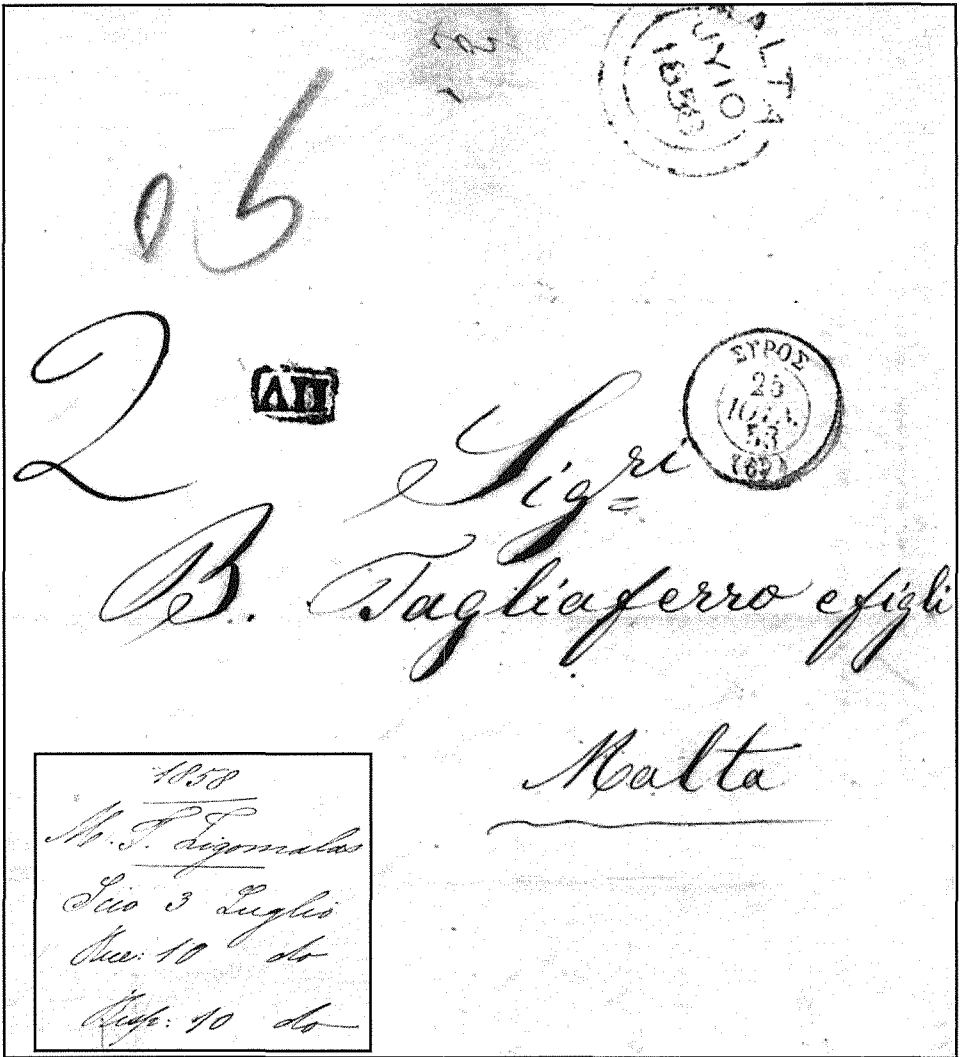 MALTA
JY 10
1858
2
ΑΠ
ΣΥΡΟΣ
25
ΙΟΥΝ.
58
(67)
Sig.ri
B. Tagliaferro e figli
Malta
1858
M. T. Ligomalas
Scio 3 Luglio
Rice: 10 do
Risp: 10 do